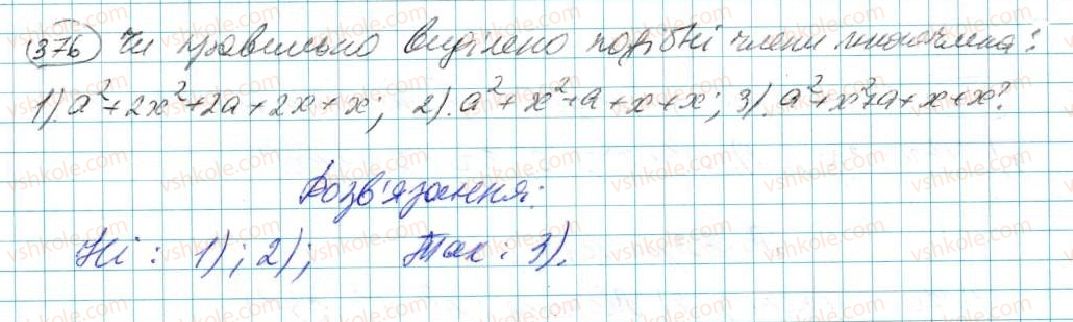 376 Чи правильно виділено подібні члени многочлена:
1). a²+2x²+2a+2x+x; 2). a²+x²+a+x+x; 3). a²+x²+a+x+x?
Розв'язання:
Ні : 1); 2); Так : 3).